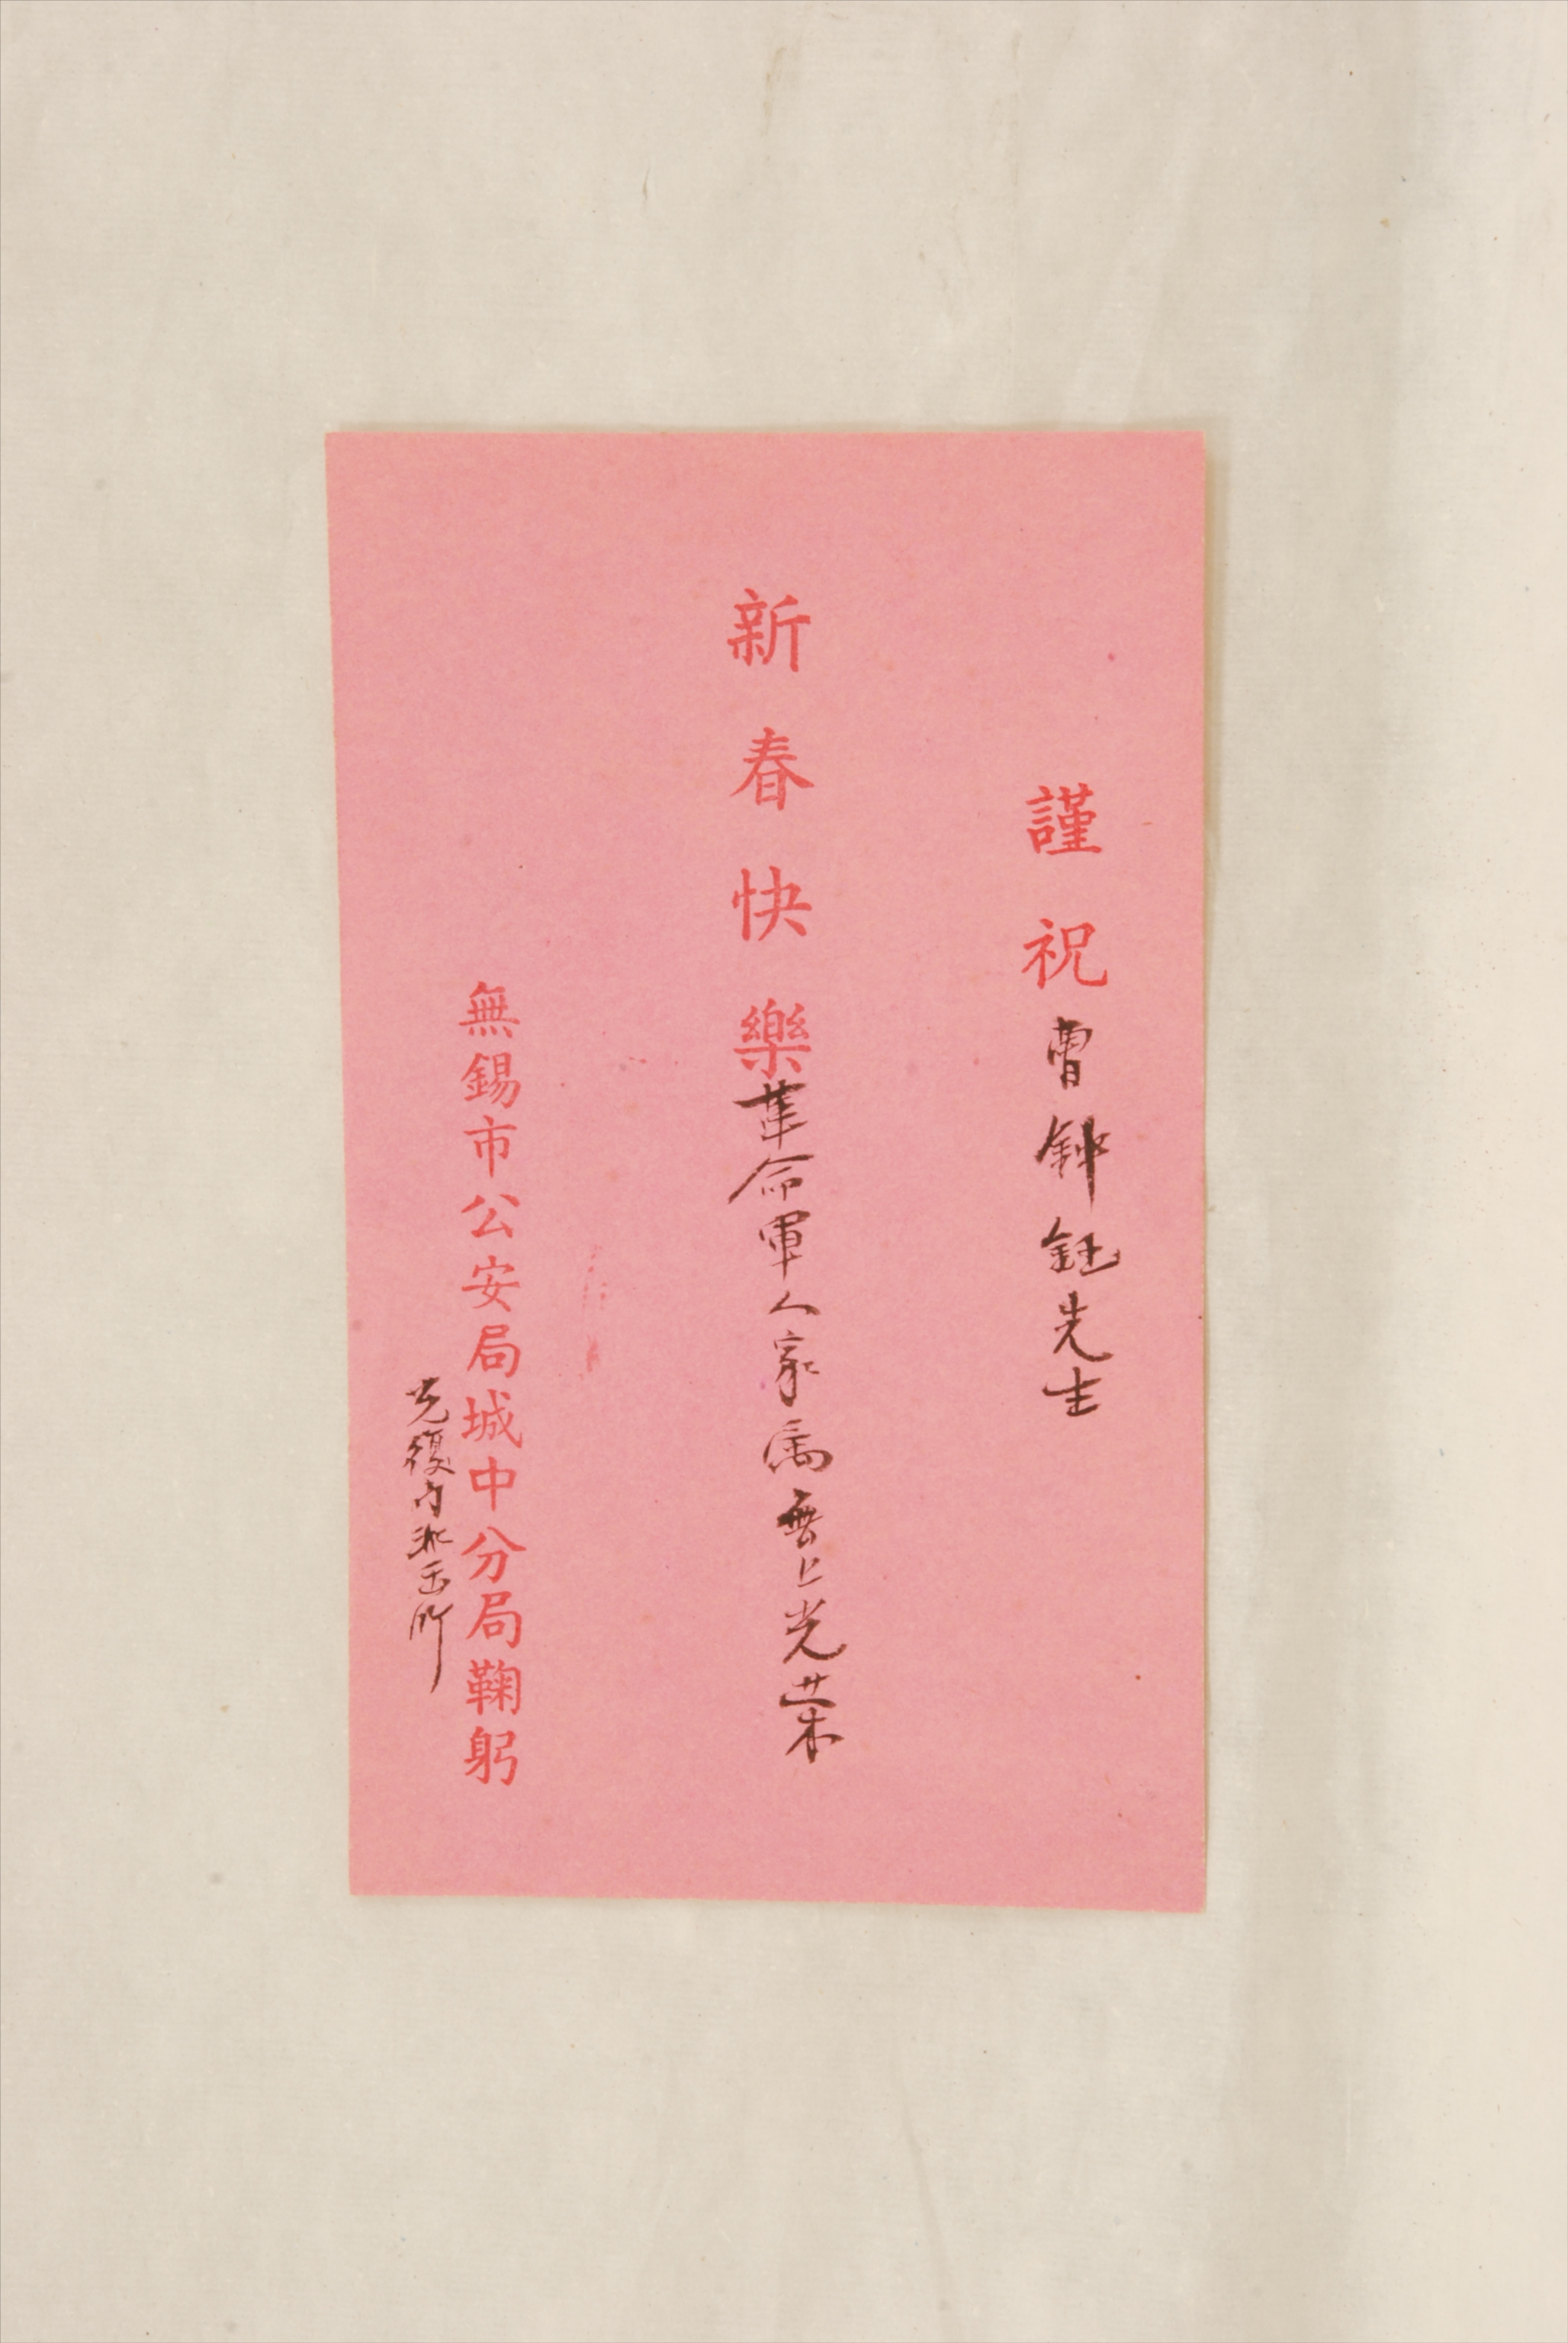 謹祝曹鈡鈺先生
新春快樂革命軍人家属無上光荣
無錫市公安局城中分局鞠躬
光復内派出所